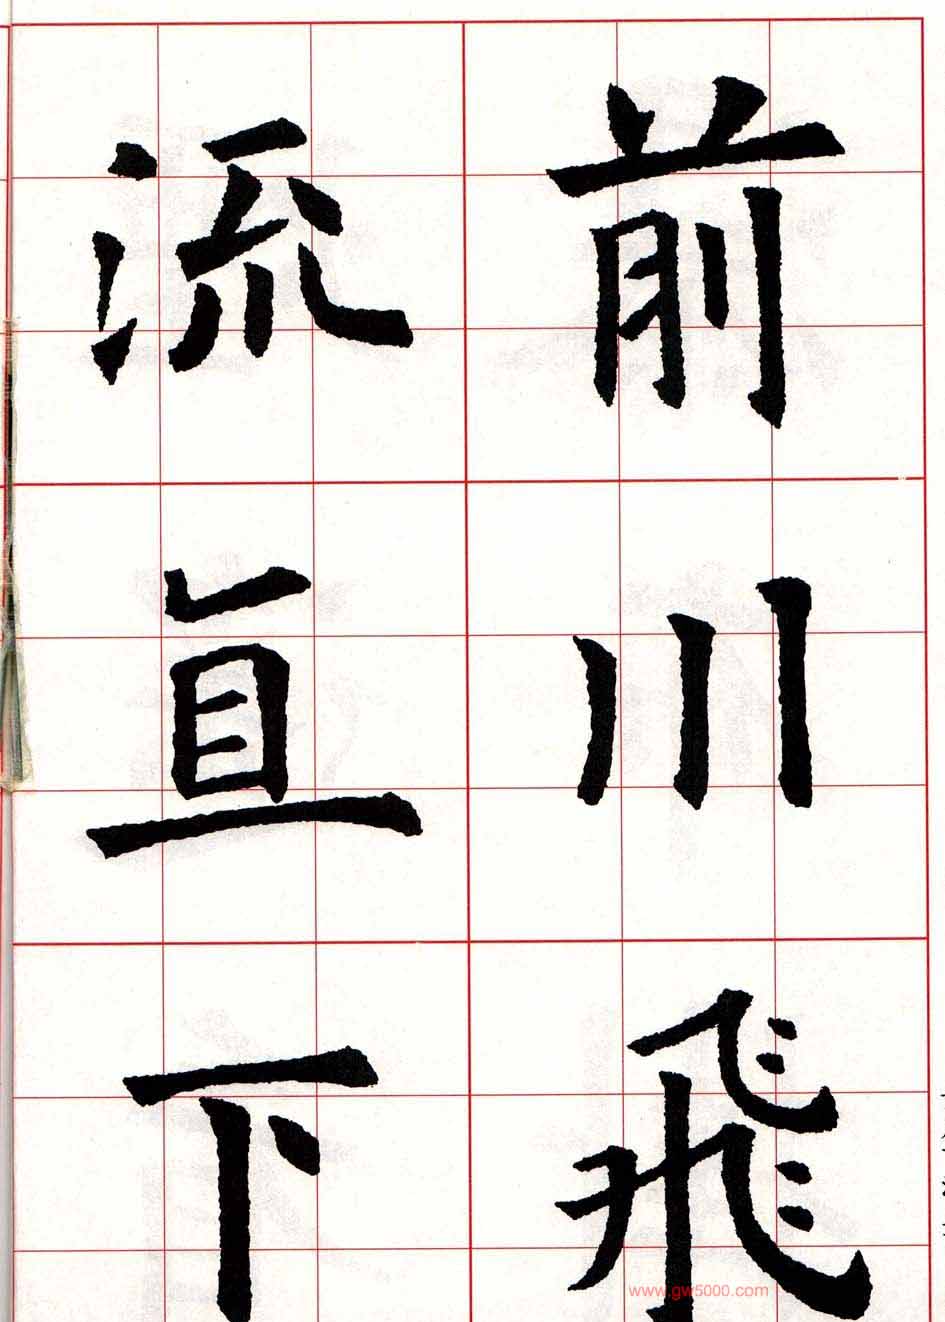 前川飛
流直下
www.gw5000.com